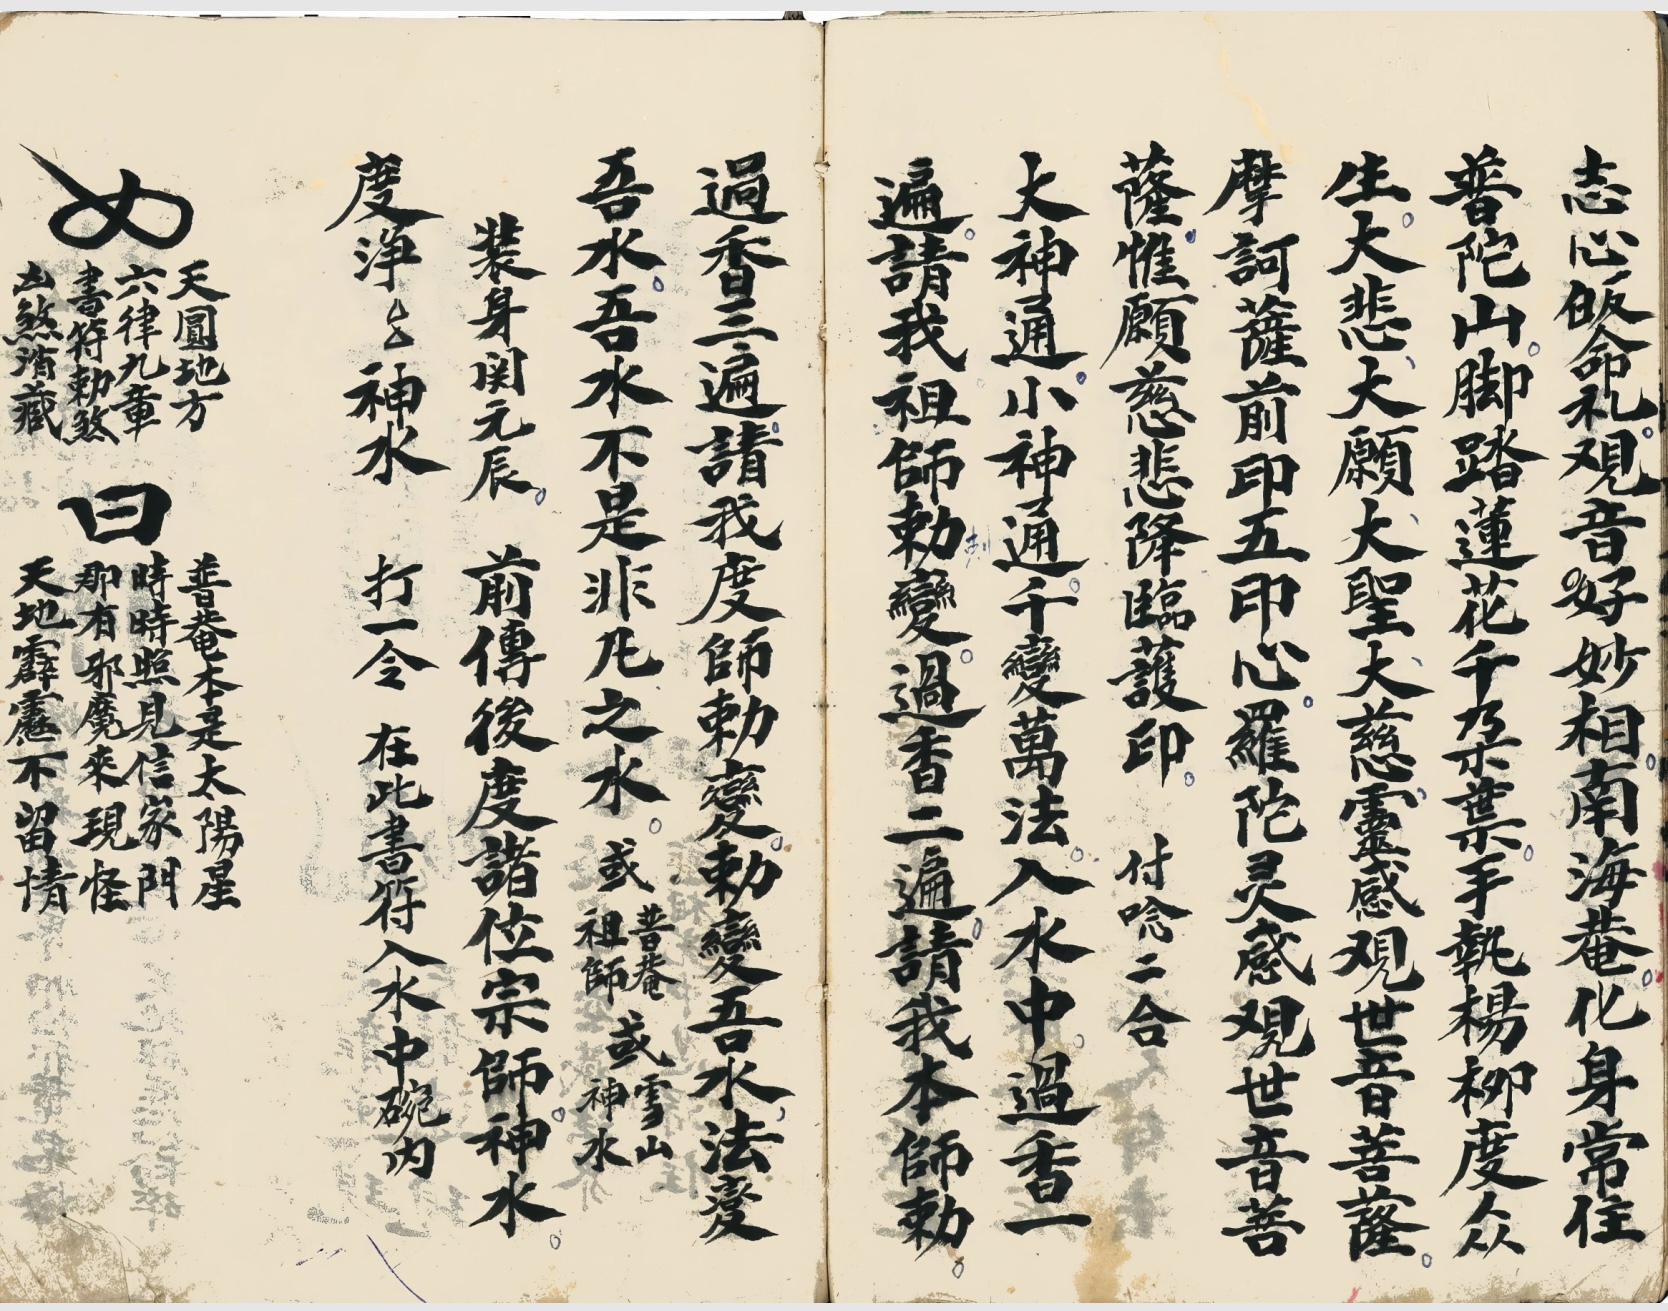 志心皈命礼覌音好妙相南海菴化身常住
普陀山脚踏蓮花千朶葉手執楊柳度众
生大悲大願大聖大慈靈感覌世音菩薩
摩訶薩前印五印心羅陀灵感覌世音菩
薩惟願慈悲降臨護印 付唸二合
大神通小神通千變萬法入水中過香一
遍請我祖師勅變過香二遍請我本師勅
過香三遍請我度師勅變勅變吾水法变
吾水吾水不是非凡之水或普菴祖師或雪山神水
装身関元辰 前傳後度諸位宗師神水
度淨〻神水 打一令 在此書符入水中碗内
天圓地方
六律九章
書符勅煞
凶煞消藏
曰
普菴本是太陽星
時時照見信家門
那有邪魔来現怪
天地霹靂不留情